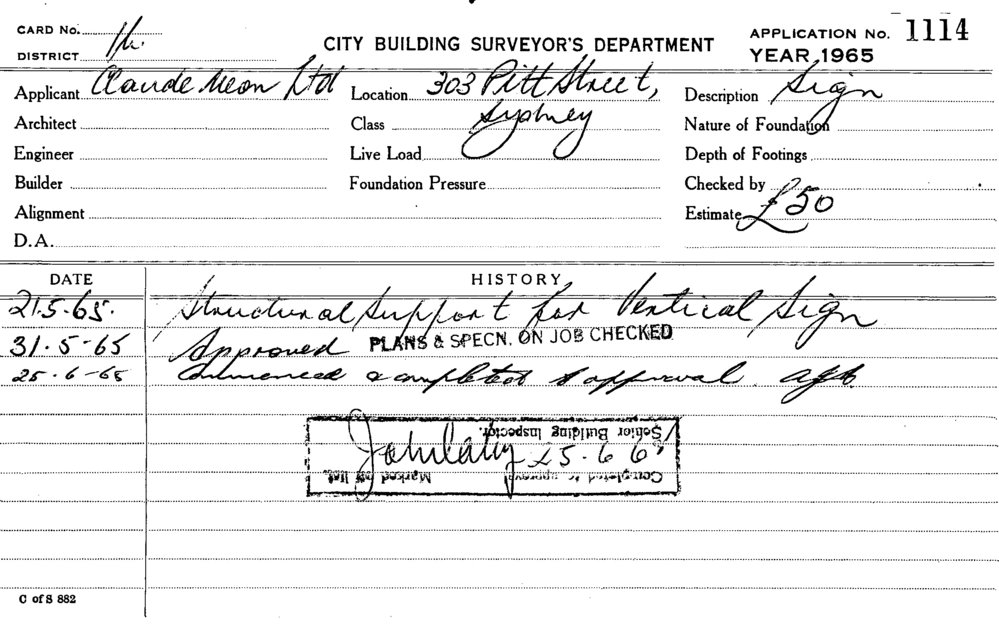 CARD No. 
DISTRICT
CITY BUILDING SURVEYOR'S DEPARTMENT
APPLICATION No. 1114
YEAR 1965
Applicant Claude Neon Ltd
Location 303 Pitt Street,
Description Sign
Architect
Class Sydney
Nature of Foundation
Engineer
Live Load
Depth of Footings
Builder
Foundation Pressure
Checked by
Alignment
Estimate £50
D.A.
DATE HISTORY
21.5.65. Structural Support for Vertical Sign
31.5-65 Approved PLANS & SPECN. ON JOB CHECKED
25-6-65 Commenced & completed to approval.
Completed to approval
Marked off list.
25.6 65
Senior Building Inspector.
C of S 882